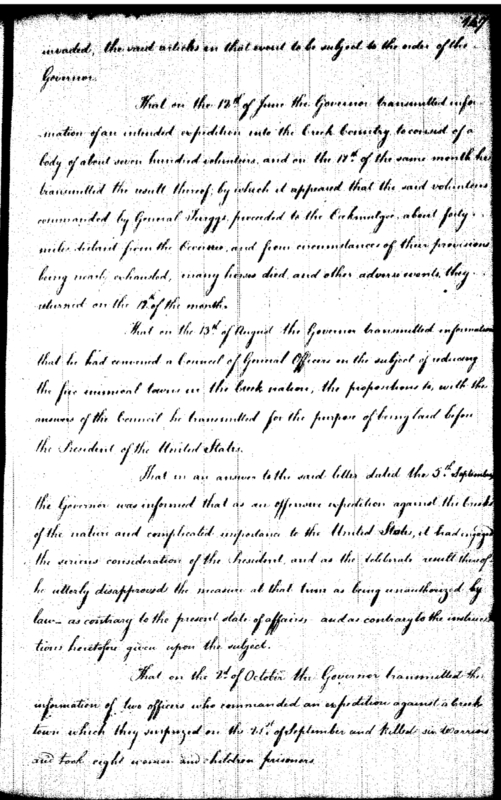 147
invaded, the said articles in that event to be subject to the order of the
Governor.
That on the 12th of June the Governor transmitted infor-
-mation of an intended expedition into the Creek Country, to consist of a
body of about seven hundred volunteers, and on the 17th of the same month he
transmitted the result thereof, by which it appeared that the said volunteers
commanded by General Twiggs, proceeded to the Oakmulgee, about forty
miles distant from the Oconee, and from circumstances of their provisions
being nearly exhausted, many horses died, and other adverse events, they
returned on the 12th of the month.
That on the 13th of August the Governor transmitted information
that he had convened a Council of General Officers on the subject of reducing
the five inimical towns in the Creek nation, the propositions to, with the
answers of the Council he transmitted for the purpose of being laid before
the President of the United States.
That in an answer to the said letter dated the 5th September
the Governor was informed that as an offensive expedition against the Creeks
of the nature and complicated importance to the United States, it had engaged
the serious consideration of the President, and as the deliberate result thereof
he utterly disapproved the measure at that time as being unauthorized by
law— as contrary to the present state of affairs, and as contrary to the instruc-
tions heretofore given upon the subject.
That on the 2d of October the Governor transmitted the
information of two officers who commanded an expedition against a Creek
town which they surprized on the 21st of September and killed six warriors
and took eight women and children prisoners.